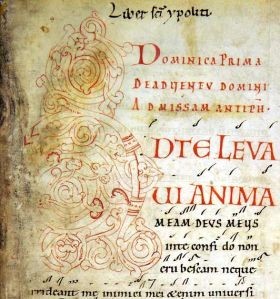 Liber sci ypoliti
DOMINICA PRIMA
DE ADVENTV DOMINI
AD MISSAM ANTIPH
ADTE LEVA
VI ANIMA
MEAM DEVS MEVS
inte confido non
erubescam neque
irrideant me inimici mei &enim universi